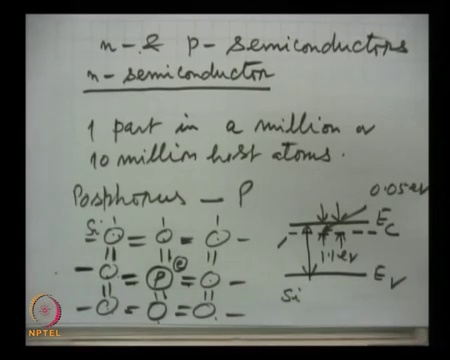 n- & p- semiconductors
n- semiconductor
1 part in a million or
10 million host atoms.
Posphorus — P
0.05 eV
Si
E_C
P e
1.1 eV
Si
E_V
NPTEL